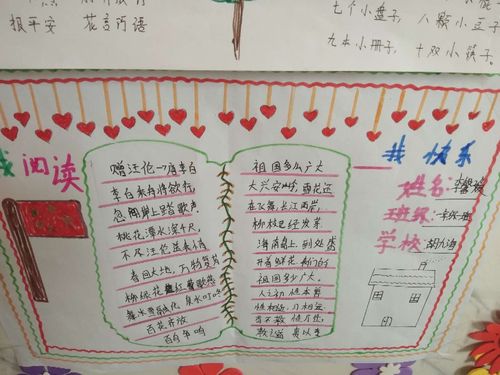 报平安 花言巧语
七个小盘子, 八颗小豆子
九本小册子, 十双小筷子.
我阅读
我快乐
赠汪伦一唐李白
李白乘舟将欲行,
忽闻岸上踏歌声.
桃花潭水深千尺,
不及汪伦送我情
春回大地, 万物复苏
柳绿花红 莺歌燕
舞冰雪融化, 泉水叮咚
百花齐放
百鸟争鸣
祖国多么广大
大兴安岭, 雪花还
在飞舞, 长江两岸,
柳枝已经发芽
海南岛上, 到处盛
开着鲜花 我们的
祖国多广大.
人之初 性本善
性相近, 习相远
苟不教 性乃迁
教之道 贵以专
姓名:
班级:
学校: